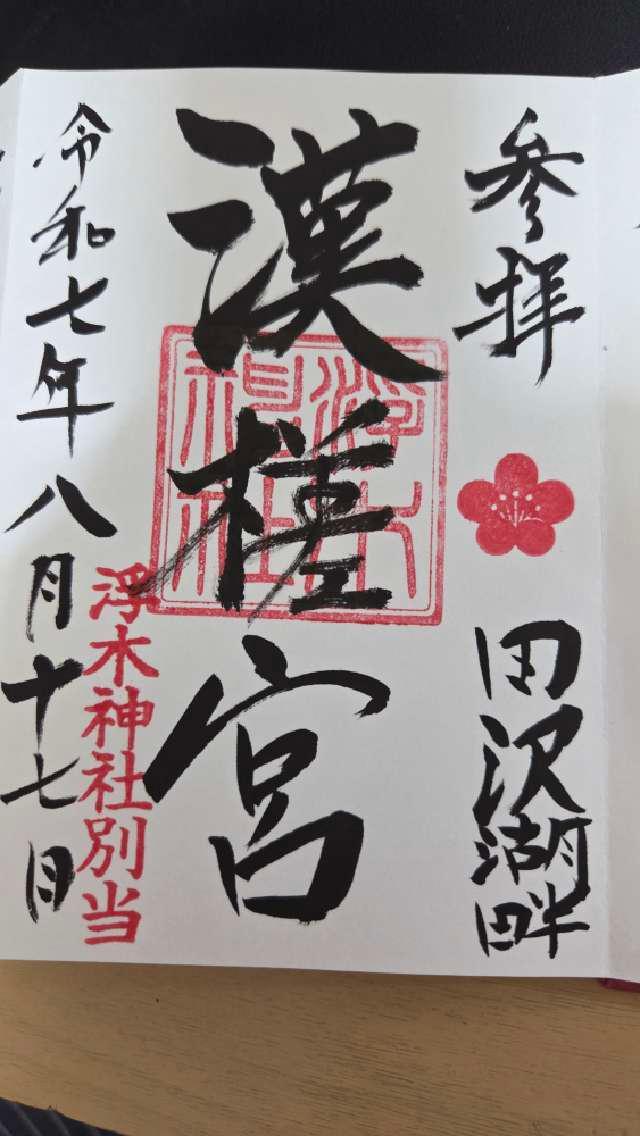 参拝
田沢湖畔
漢槎宮
浮木神社
令和七年八月十七日
浮木神社別当